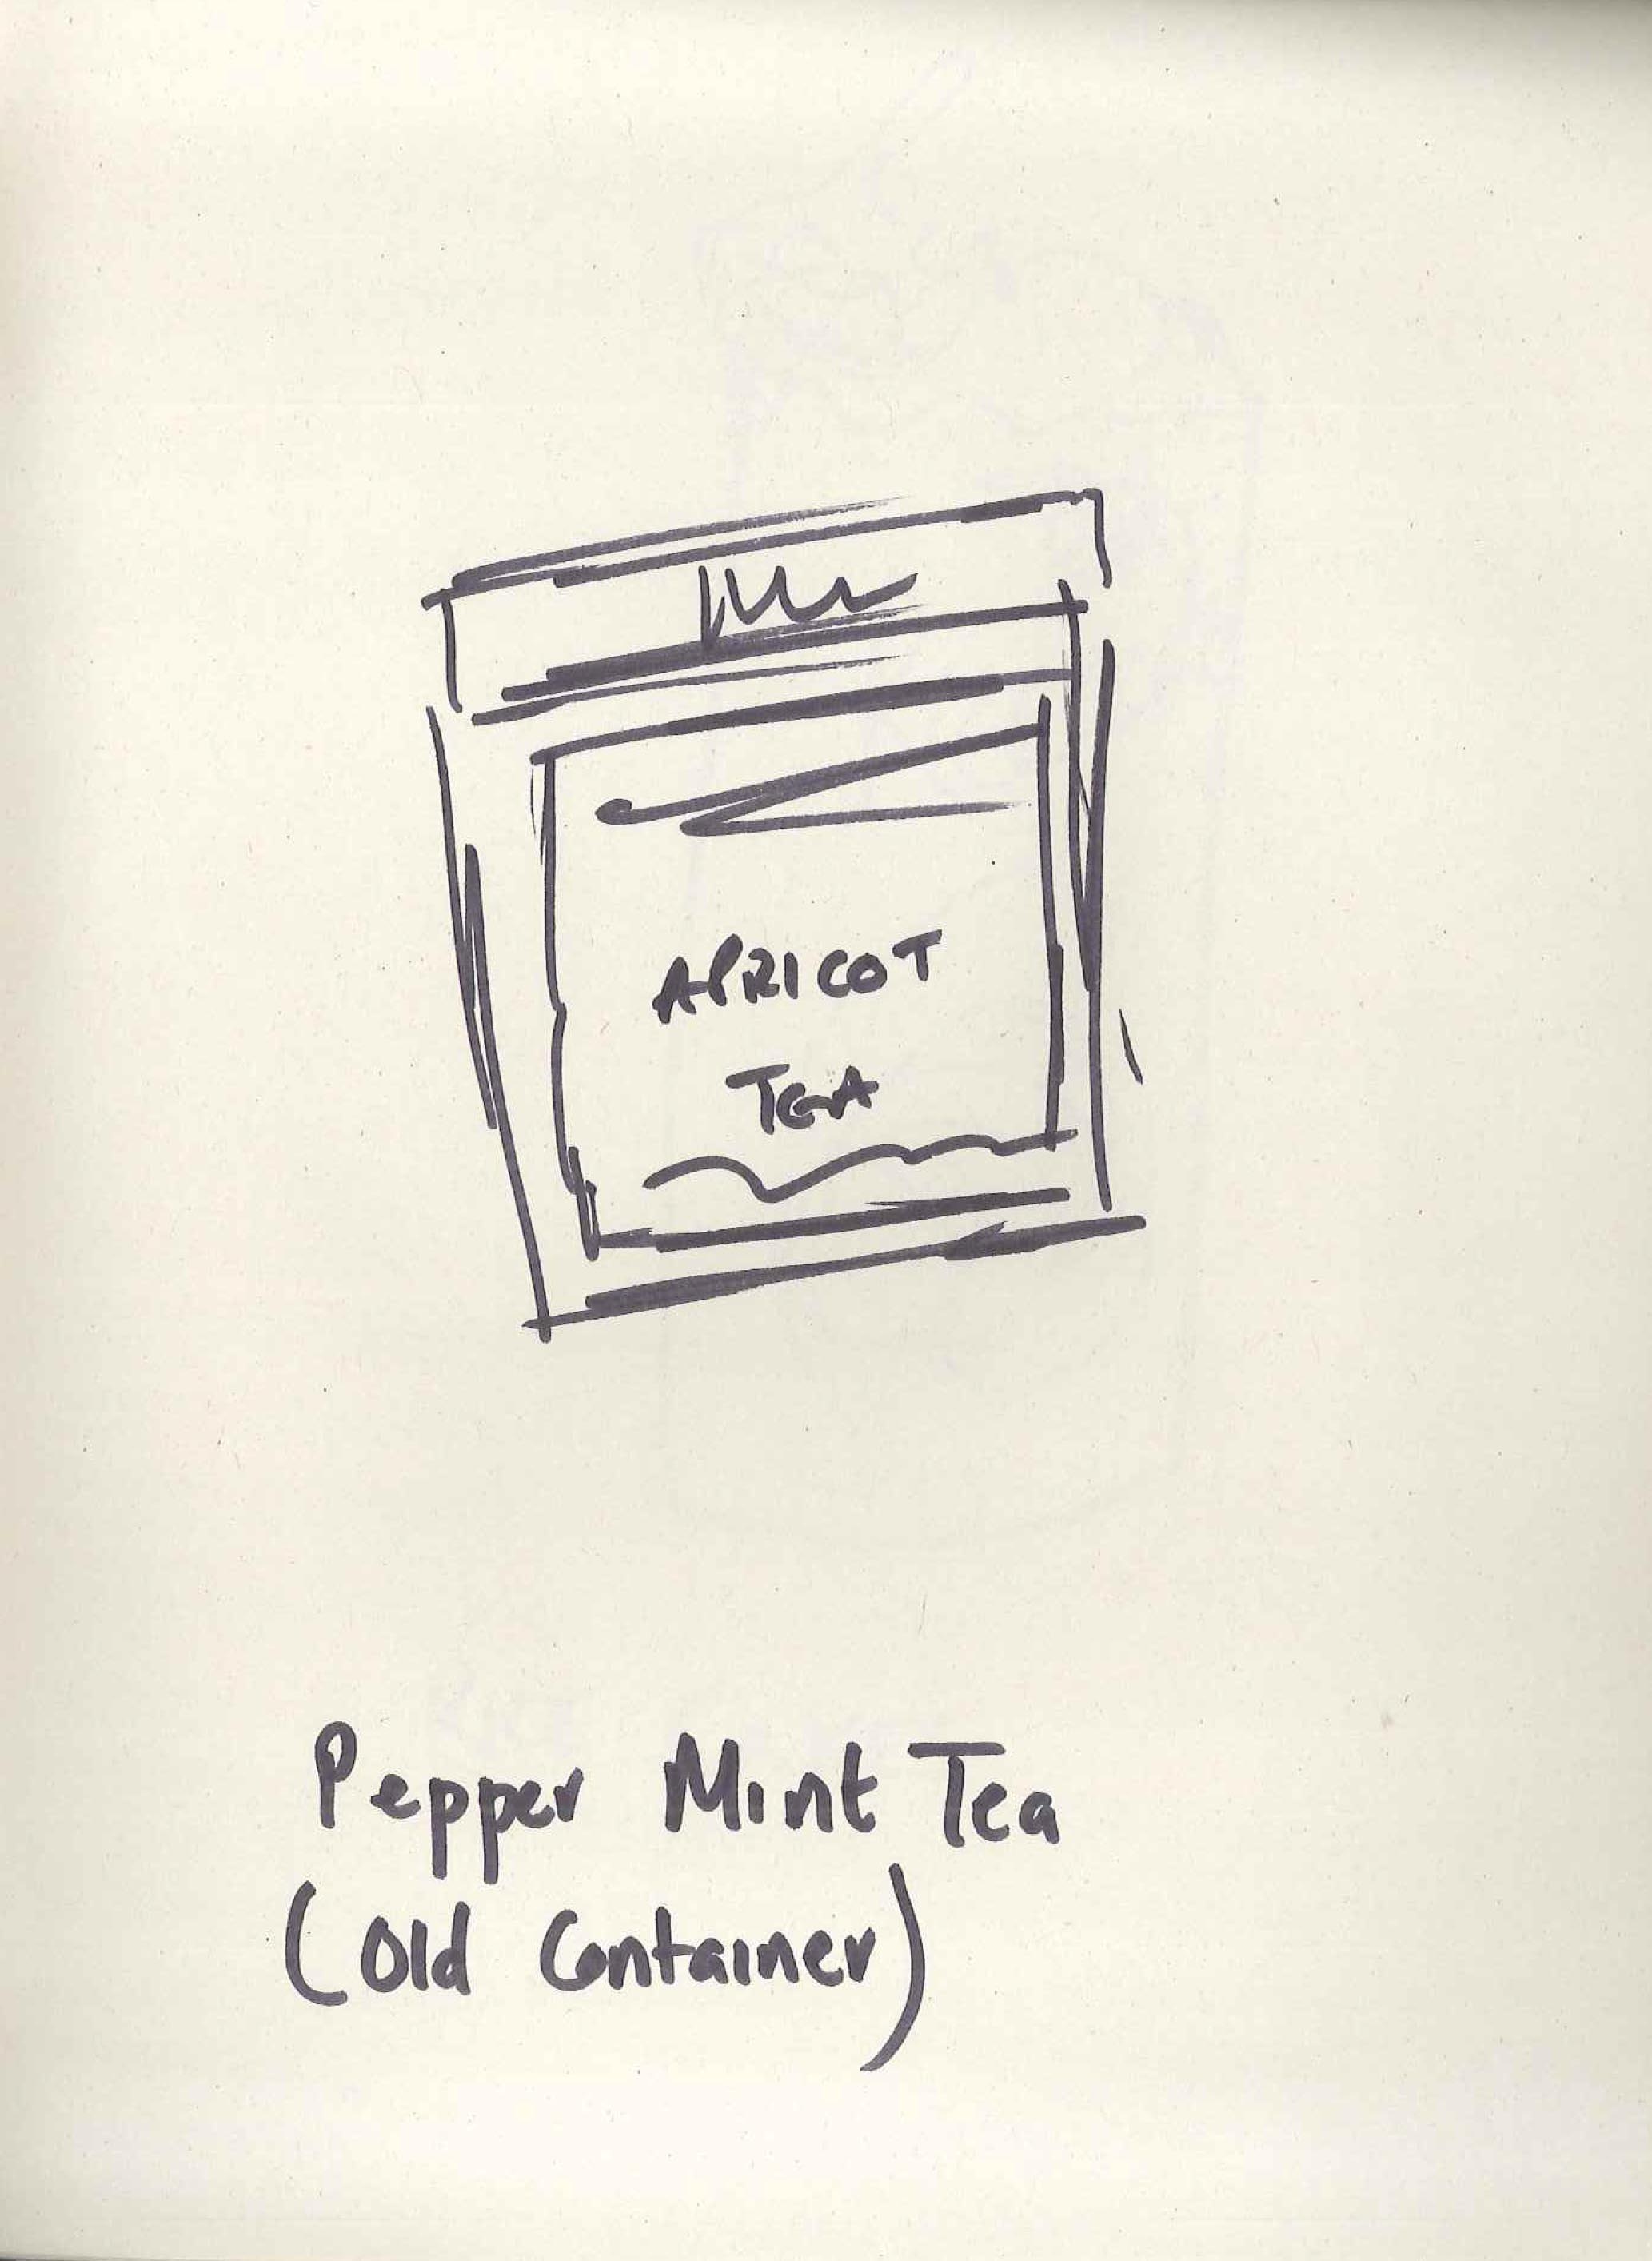 APRICOT
TEA
Pepper Mint Tea
(Old Container)